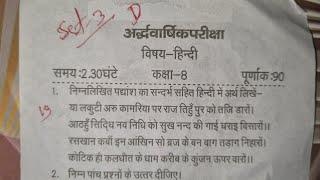 Set-3 D
अर्द्धवार्षिकपरीक्षा
विषय-हिन्दी
समय:2.30घंटे कक्षा-8 पूर्णांक:90
1. निम्नलिखित पद्यांश का सन्दर्भ सहित हिन्दी में अर्थ लिखें-
या लकुटी अरु कामरिया पर राज तिहुँ पुर को तजि डारौं।
आठहुँ सिद्धि नव निधि को सुख नन्द की गाई चराइ बिसारौं।।
रसखान कबौं इन आंखिन सो ब्रज के बन बाग तड़ाग निहारौं।
कोटिक हौ कलधौत के धाम करीब के कुंजन ऊपर वारौं।।
2. निम्न पांच प्रश्नों के उत्तर दीजिए।